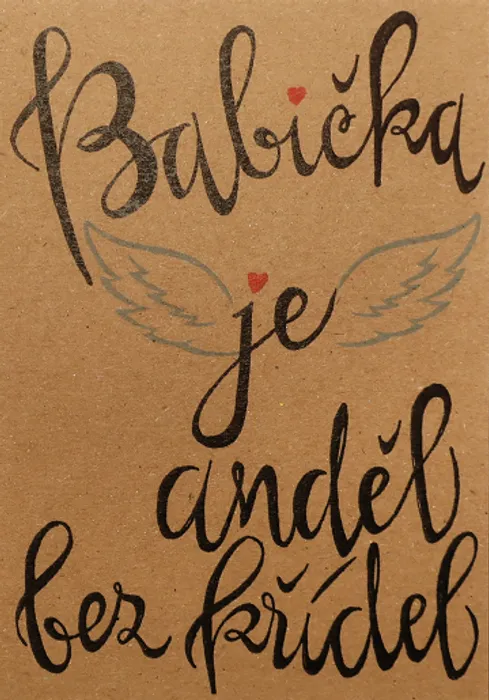 Babička
je
anděl
bez křídel